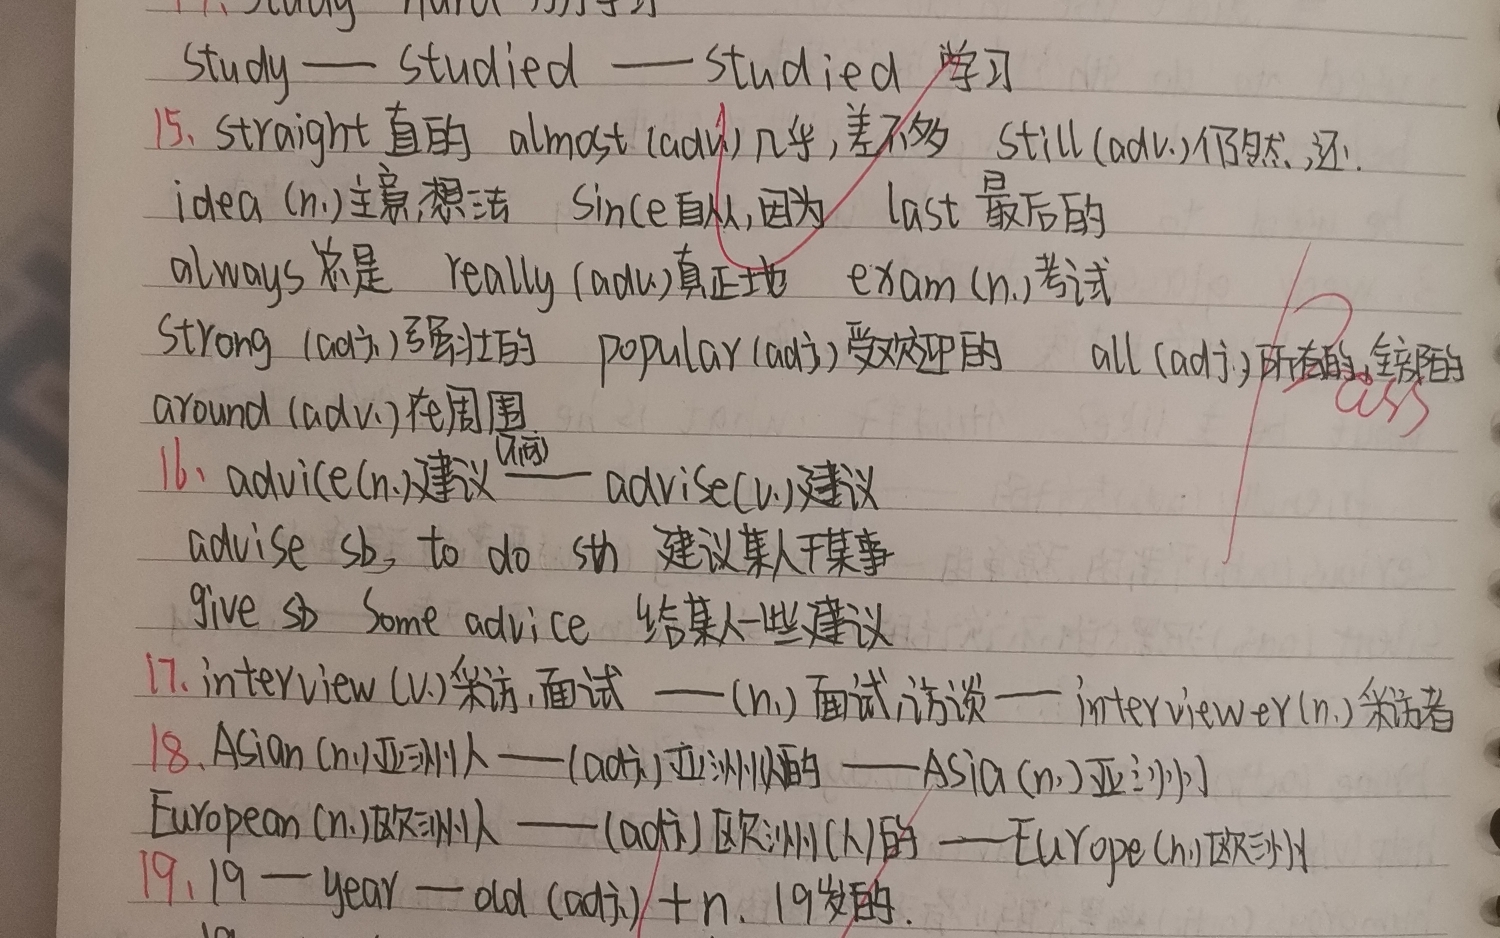 study hard 努力学习
study — studied — studied 学习
15. straight 直的 almost (adv.) 几乎,差不多 still (adv.) 仍然,还.
idea (n.) 主意,想法 since 自从,因为 last 最后的
always 总是 really (adv.) 真正地 exam (n.) 考试
strong (adj.) 强壮的 popular (adj.) 受欢迎的 all (adj.) 所有的,全部的
Pass
around (adv.) 在周围
16. advice (n.) 建议 (不可) — advise (v.) 建议
advise sb. to do sth 建议某人干某事
give sb some advice 给某人一些建议
17. interview (v.) 采访,面试 — (n.) 面试,访谈 — interviewer (n.) 采访者
18. Asian (n.) 亚洲人 — (adj.) 亚洲(人)的 — Asia (n.) 亚洲
European (n.) 欧洲人 — (adj.) 欧洲(人)的 — Europe (n.) 欧洲
19. 19 — year — old (adj.) + n. 19岁的.